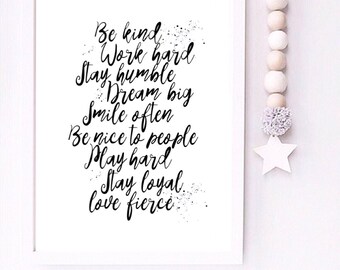 Be kind
Work hard
Stay humble
Dream big
Smile often
Be nice to people
Play hard
Stay loyal
love fierce